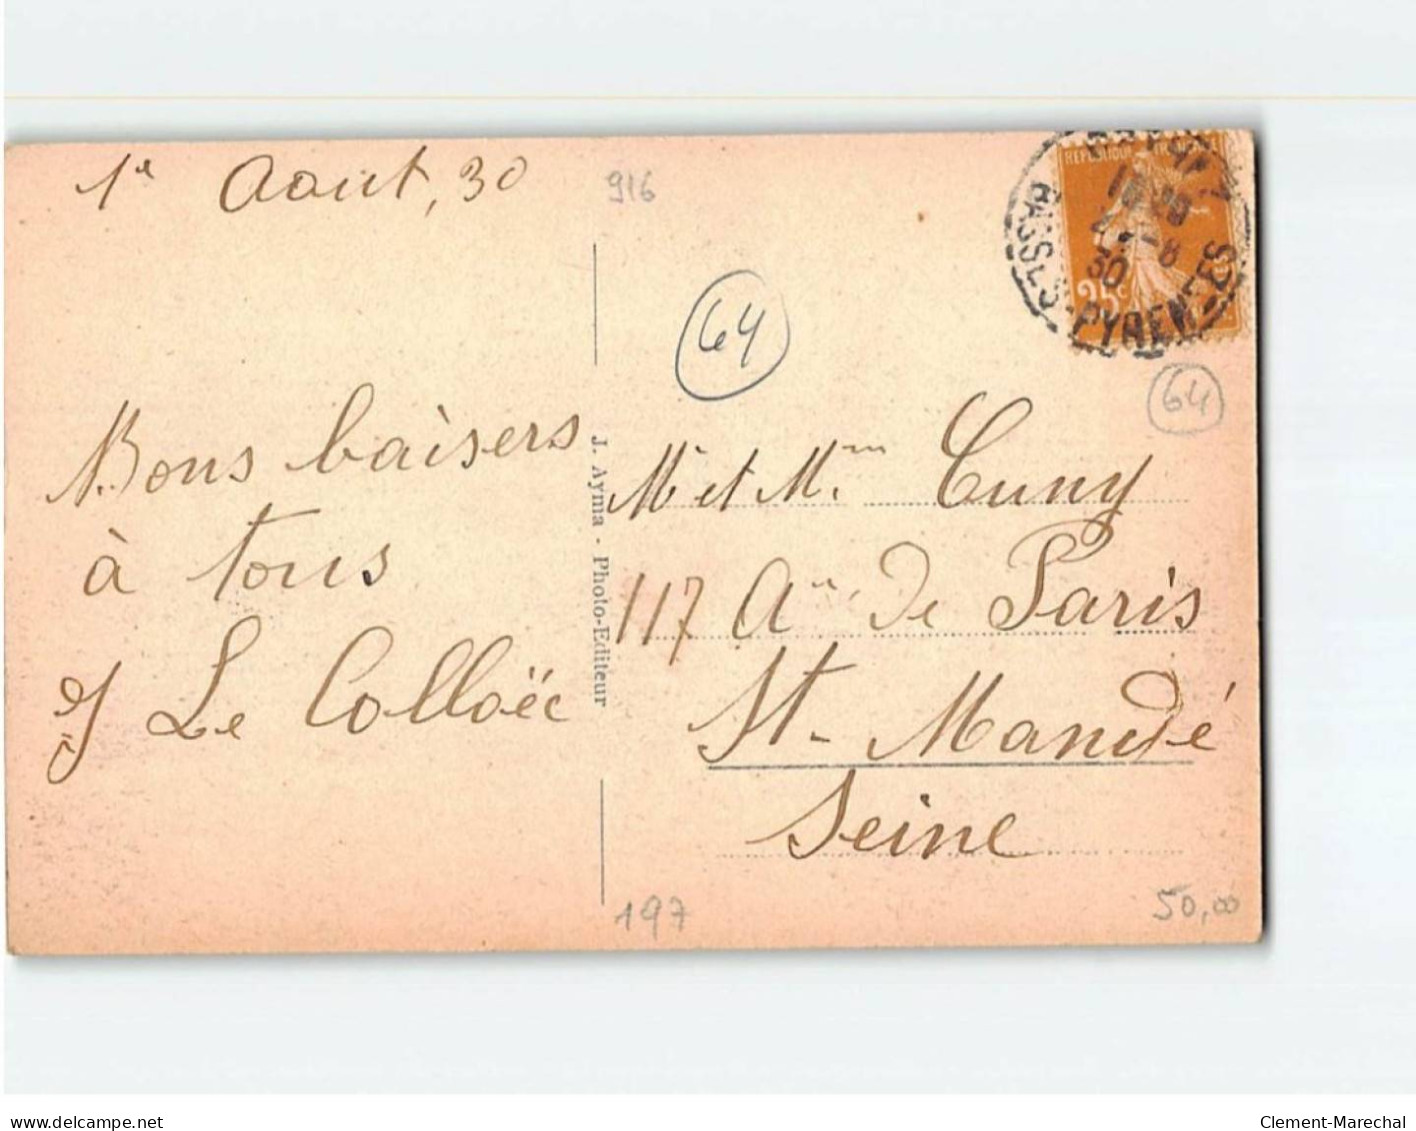 1er Aout, 30
916
64
Bons baisers
à tous
Le Colloëc
J. Ayma - Photo-Editeur
REPUBLIQUE FRANCAISE
25c
BASSES-PYRENEES
30
64
Mr et Mme Cuny
117 Aue de Paris
St-Mandé
Seine
197
50,00
www.delcampe.net
Clement-Marechal